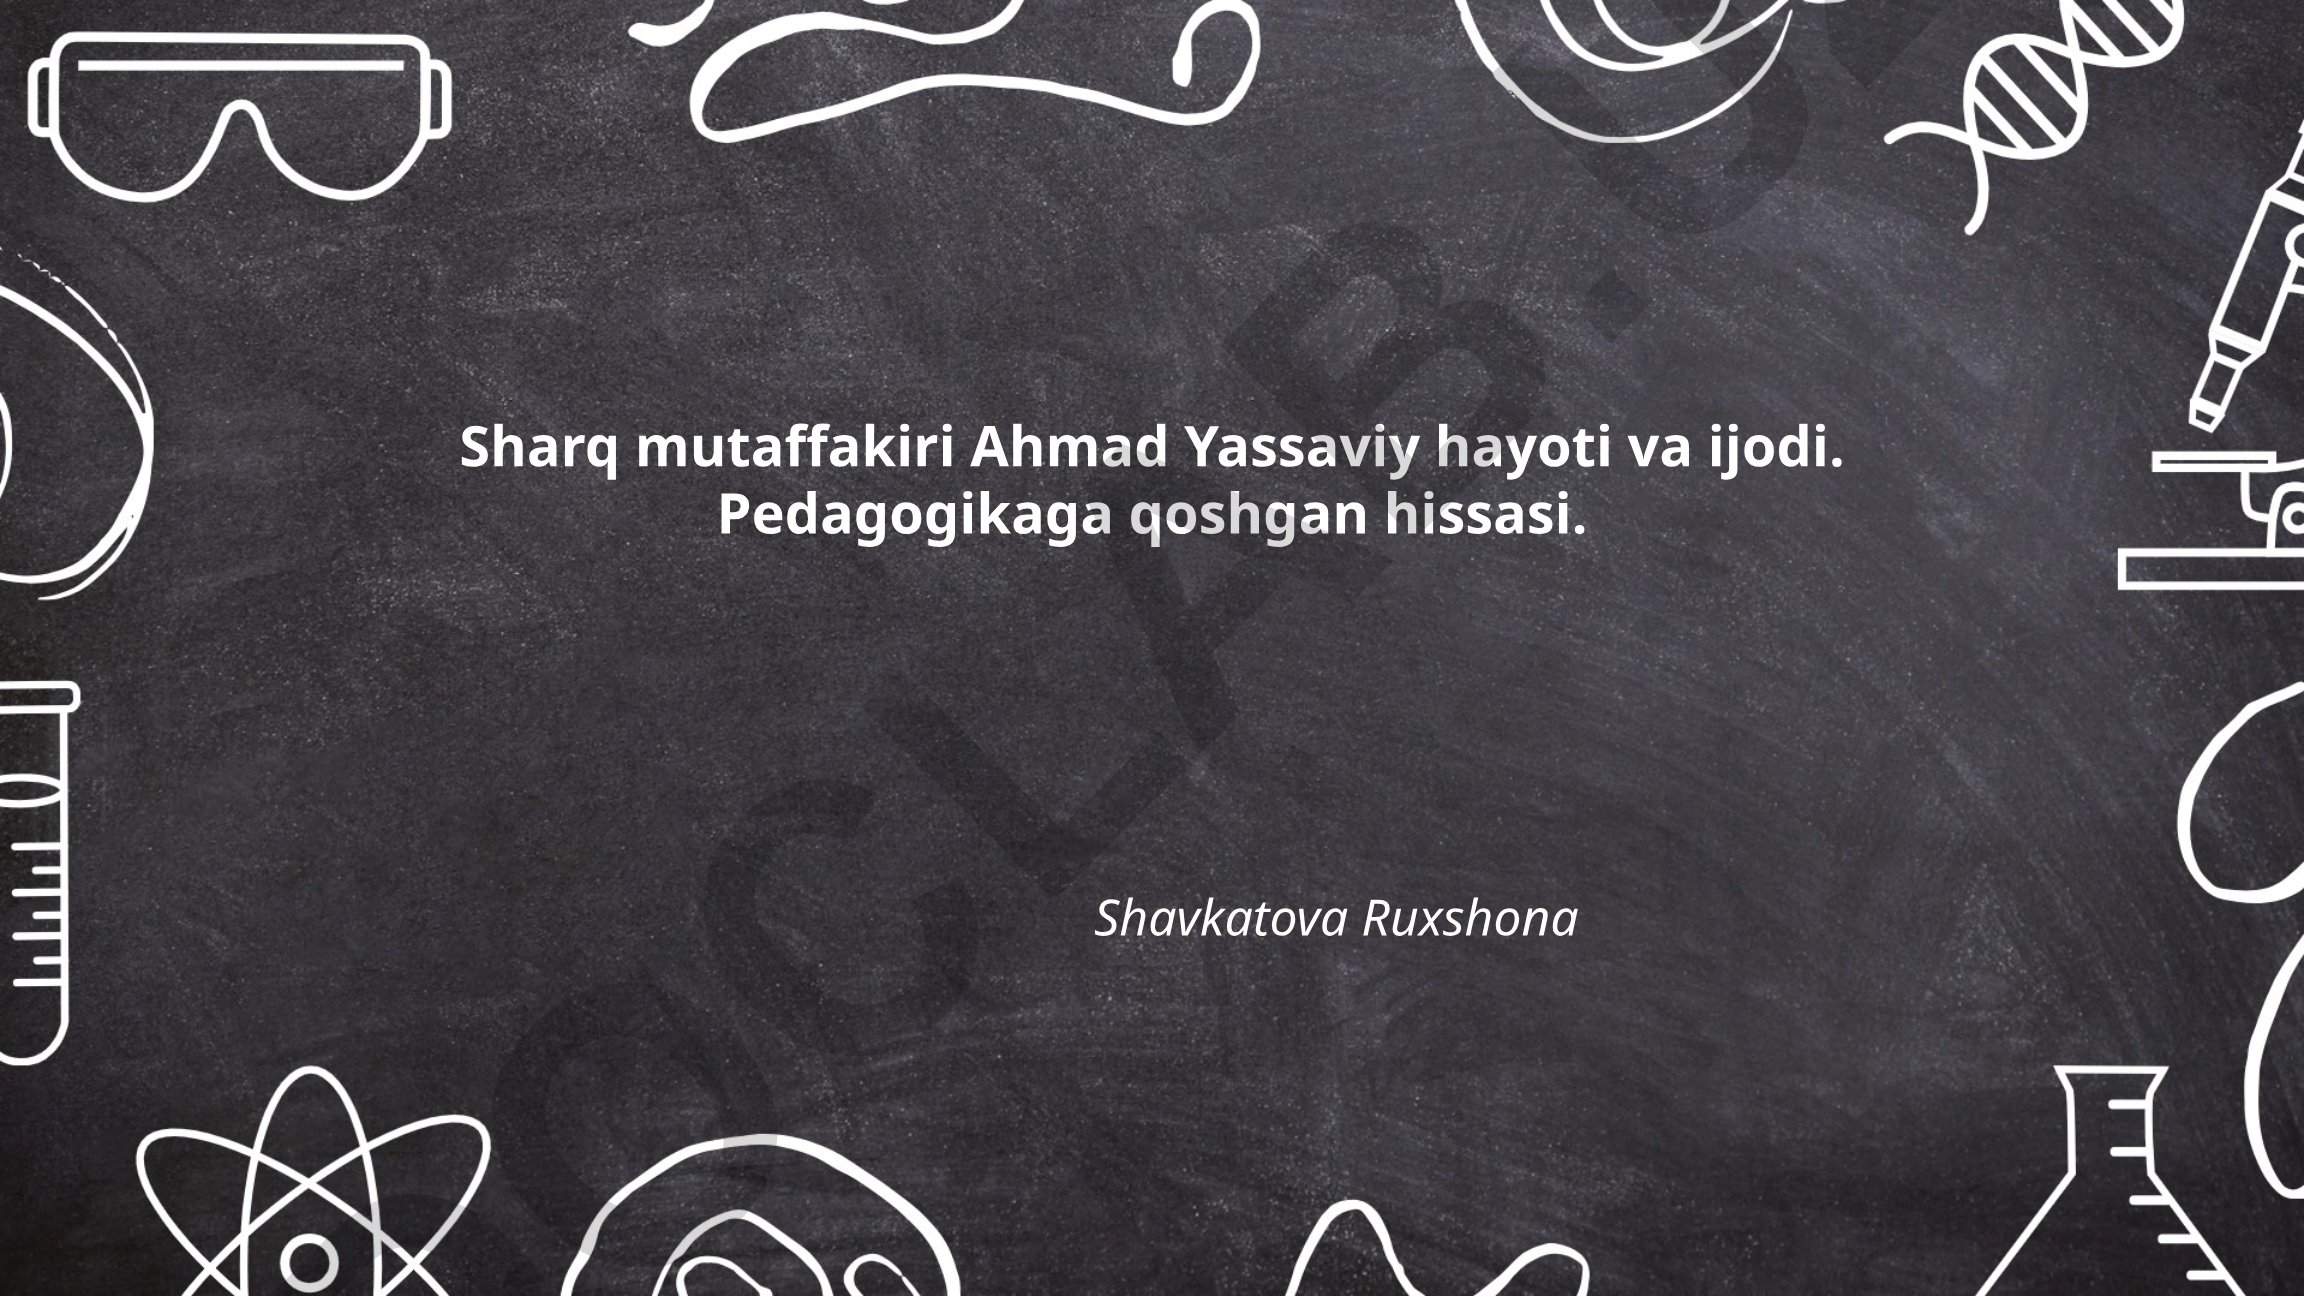 Sharq mutaffakiri Ahmad Yassaviy hayoti va ijodi.
Pedagogikaga qoshgan hissasi.
Shavkatova Ruxshona